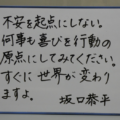 不安を起点にしない。
何事も喜びを行動の
原点にしてみてください。
すぐに世界が変わり
ますよ。
坂口恭平